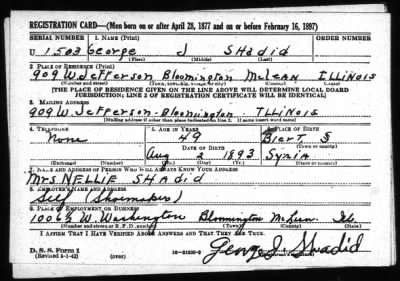 REGISTRATION CARD—(Men born on or after April 28, 1877 and on or before February 16, 1897)
SERIAL NUMBER 1. NAME (Print) ORDER NUMBER
U 1503 George J Shadid
(First) (Middle) (Last)
2. PLACE OF RESIDENCE (Print)
909 W. Jefferson Bloomington McLean ILLINOIS
(Number and street) (Town, township, village, or city) (County) (State)
[THE PLACE OF RESIDENCE GIVEN ON THE LINE ABOVE WILL DETERMINE LOCAL BOARD
JURISDICTION; LINE 2 OF REGISTRATION CERTIFICATE WILL BE IDENTICAL]
3. MAILING ADDRESS
909 W. Jefferson - Bloomington ILLINOIS
[Mailing address if other than place indicated on line 2. If same insert word same]
4. TELEPHONE 5. AGE IN YEARS 6. PLACE OF BIRTH
None 49
DATE OF BIRTH (Town or county)
Aug 2 1893 Syria
(Exchange) (Number) (Mo.) (Day) (Yr.) (State or country)
7. NAME AND ADDRESS OF PERSON WHO WILL ALWAYS KNOW YOUR ADDRESS
Mrs NELLIE Shadid
8. EMPLOYER'S NAME AND ADDRESS
Self (Shoemaker)
9. PLACE OF EMPLOYMENT OR BUSINESS
1006½ W. Washington Bloomington McLean Ill.
(Number and street or R. F. D. number) (Town) (County) (State)
I AFFIRM THAT I HAVE VERIFIED ABOVE ANSWERS AND THAT THEY ARE TRUE.
D. S. S. Form 1
(Revised 4-1-42) (over) George J. Shadid